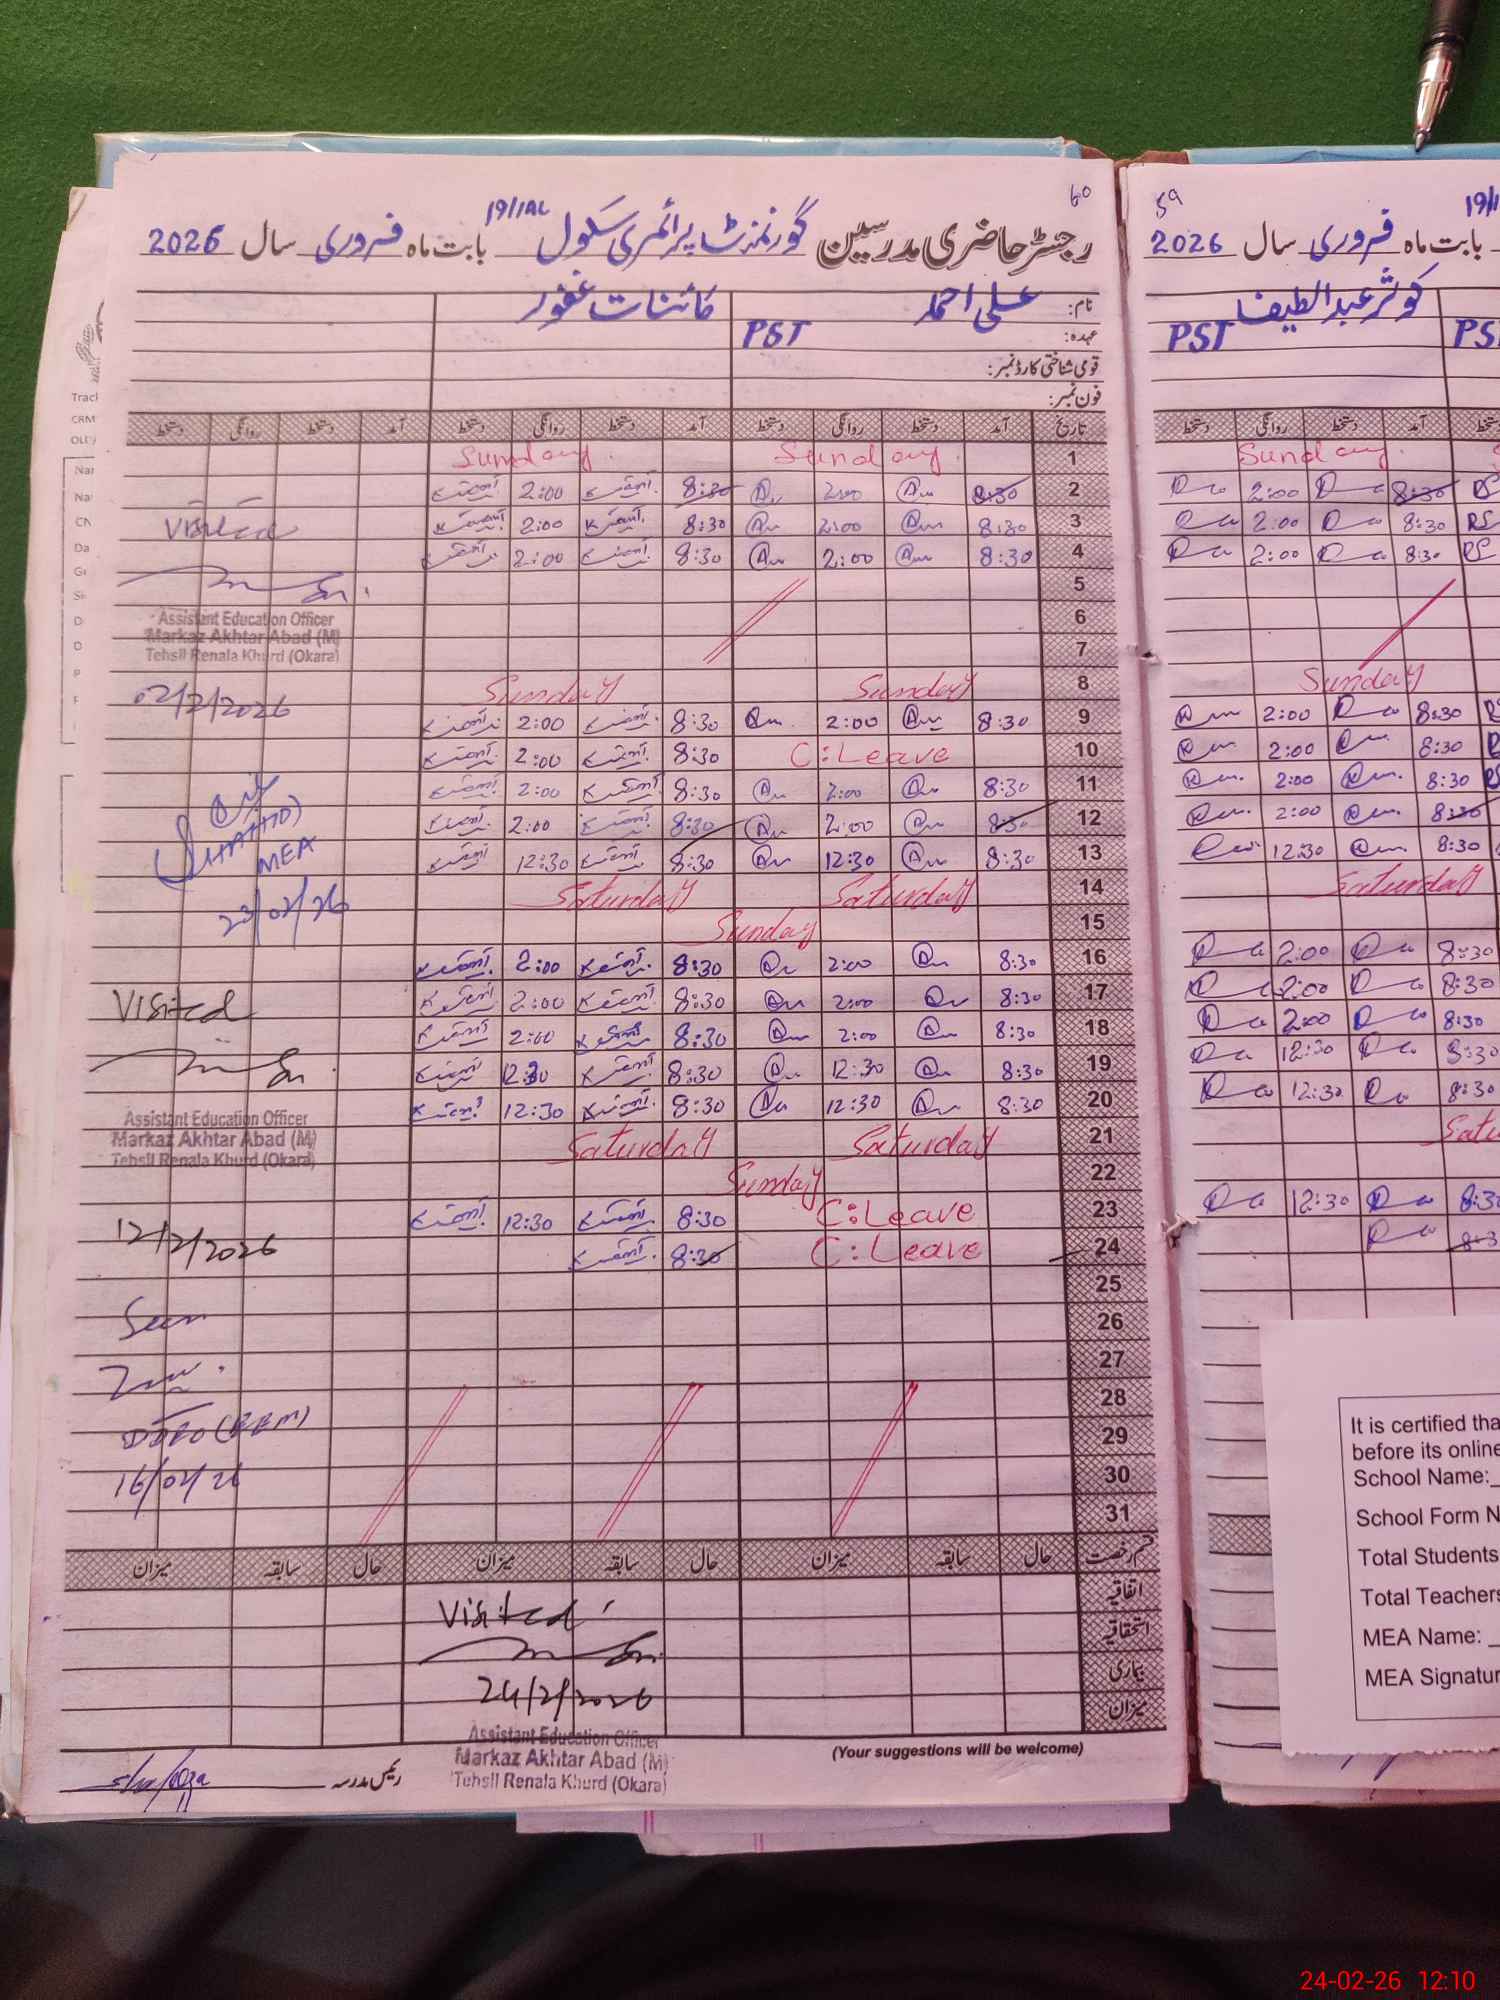 60
رجسٹر حاضری مدرسین گورنمنٹ پرائمری سکول 19/1AL بابت ماہ فروری سال 2026
نام: علی احمد کائنات غفور
عہدہ: PST
قومی شناختی کارڈ نمبر:
فون نمبر:
تاریخ آمد دستخط روانگی دستخط آمد دستخط روانگی دستخط آمد دستخط روانگی دستخط
1 Sunday. Sunday.
2 8:30 2:00 8:30 2:00
3 8:30 2:00 8:30 2:00
4 8:30 2:00 8:30 2:00
5
6
7
8 Sunday Sunday
9 8:30 2:00 8:30 2:00
10 C:Leave 8:30 2:00
11 8:30 2:00 8:30 2:00
12 8:30 2:00 8:30 2:00
13 8:30 12:30 8:30 12:30
14 Saturday Saturday
15 Sunday
16 8:30 2:00 8:30 2:00
17 8:30 2:00 8:30 2:00
18 8:30 2:00 8:30 2:00
19 8:30 12:30 8:30 12:30
20 8:30 12:30 8:30 12:30
21 Saturday Saturday
22 Sunday
23 C:Leave 8:30 12:30
24 C:Leave 8:30
25
26
27
28
29
30
31
قسم رخصت حال سابقہ میزان حال سابقہ میزان حال سابقہ میزان
اتفاقیہ
استحقاقیہ
بیماری
میزان
Visited
Assistant Education Officer
Markaz Akhtar Abad (M)
Tehsil Renala Khurd (Okara)
02/2/2026
SHAHID
MEA
23/02/26
Visited
Assistant Education Officer
Markaz Akhtar Abad (M)
Tehsil Renala Khurd (Okara)
12/2/2026
Seen
16/02/26
Visited
24/2/2026
Assistant Education Officer
Markaz Akhtar Abad (M)
Tehsil Renala Khurd (Okara)
(Your suggestions will be welcome)
رئیس مدرسہ
59
19/1
بابت ماہ فروری سال 2026
کوثر عبدالطیف
PST PS
آمد دستخط روانگی دستخط
Sunday.
8:30 2:00
8:30 2:00
8:30 2:00
Sunday
8:30 2:00
8:30 2:00
8:30 2:00
8:30 2:00
8:30 12:30
Saturday
8:30 2:00
8:30 2:00
8:30 2:00
8:30 12:30
8:30 12:30
Satu
8:30 12:30
8:3
It is certified tha
before its online
School Name:_
School Form N
Total Students
Total Teachers
MEA Name: _
MEA Signatur
Trac
CRM
Nar
Na
CN
Da
24-02-26 12:10